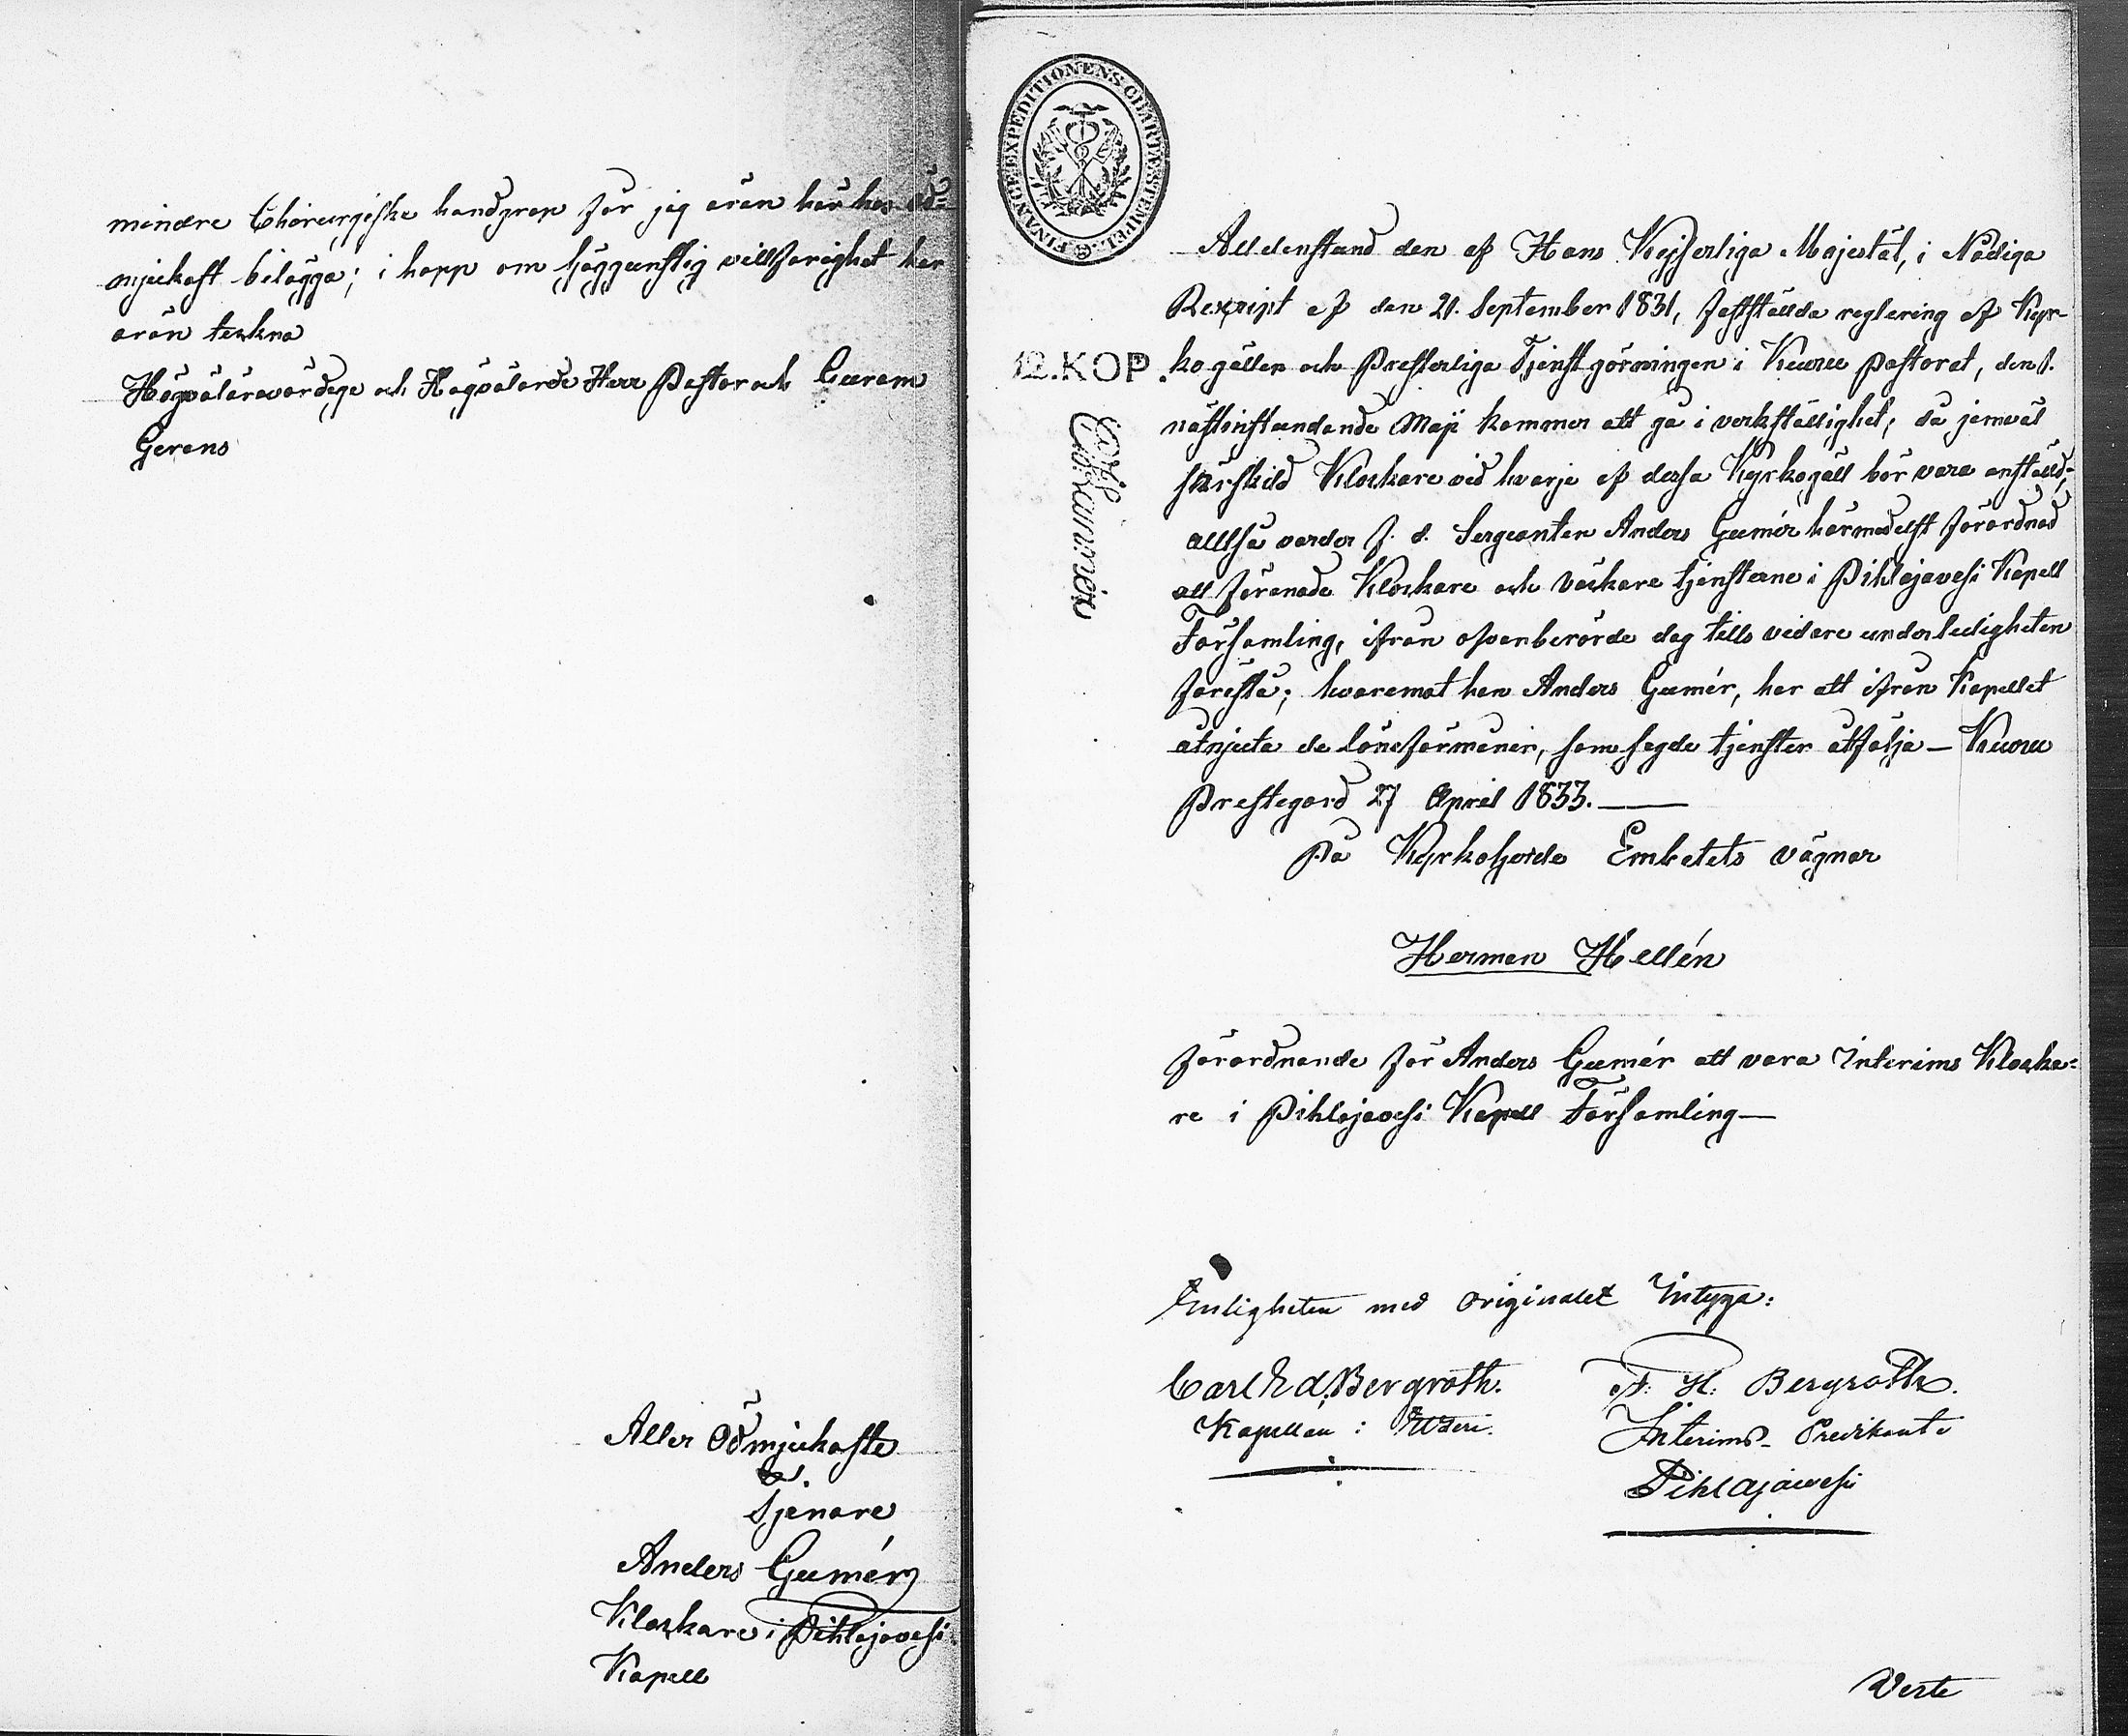 mindre Chirurgiske handgrep får jag äran här hos öd=
mjukast bilägga; i hopp om höggunstig villfarighet har
äran tekna
Högvälärevördige och Högvälärde Herr Pastor och Curam
Gerens
Aller Ödmjukaste
Tjenare
Anders Gumér
Klockare i Pihlajavesi
Kapell
FINANCE EXPEDITIONENS CHARTÆ STEMPEL
12.KOP.
Alldenstund den af Hans Kejserliga Majestät, i Nådiga
Rescript af den 21. September 1831, fastställda reglering af Kyr-
kogällen och Presterliga Tjenstgörningen i Keuru Pastorat, den 1.
nästinstundande Maji kommer att gå i verkställighet; då jemväl
särskild Klockare vid hvarje af dessa Kyrkogäll bör vara anställd;
alltså varder f. d. Sergeanten Anders Gumér härmedelst förordnad
att förenade Klockare och Väckare tjensterne i Pihlajavesi Kapell
Församling, ifrån ofvanberörde dag tills vidare under ledigheten
förestå; hvaremot han Anders Gumér, har att ifrån Kapellet
åtnjuta de löneförmåner, som sagde tjenster åtfölja – Keuru
Prestegård 27 April 1833. —
På Kyrkoherde Embetets vägnar
Herman Hellén
Förordnande för Anders Gumér att vara Interims Klocka=
re i Pihlajavesi Kapell Församling —
Enligheten med Originalet Intyga:
Carl Ed. Bergroth.
Kapellan i Etseri.
F. H. Bergroth.
Interims-Predikant i
Pihlajawesi
Verte